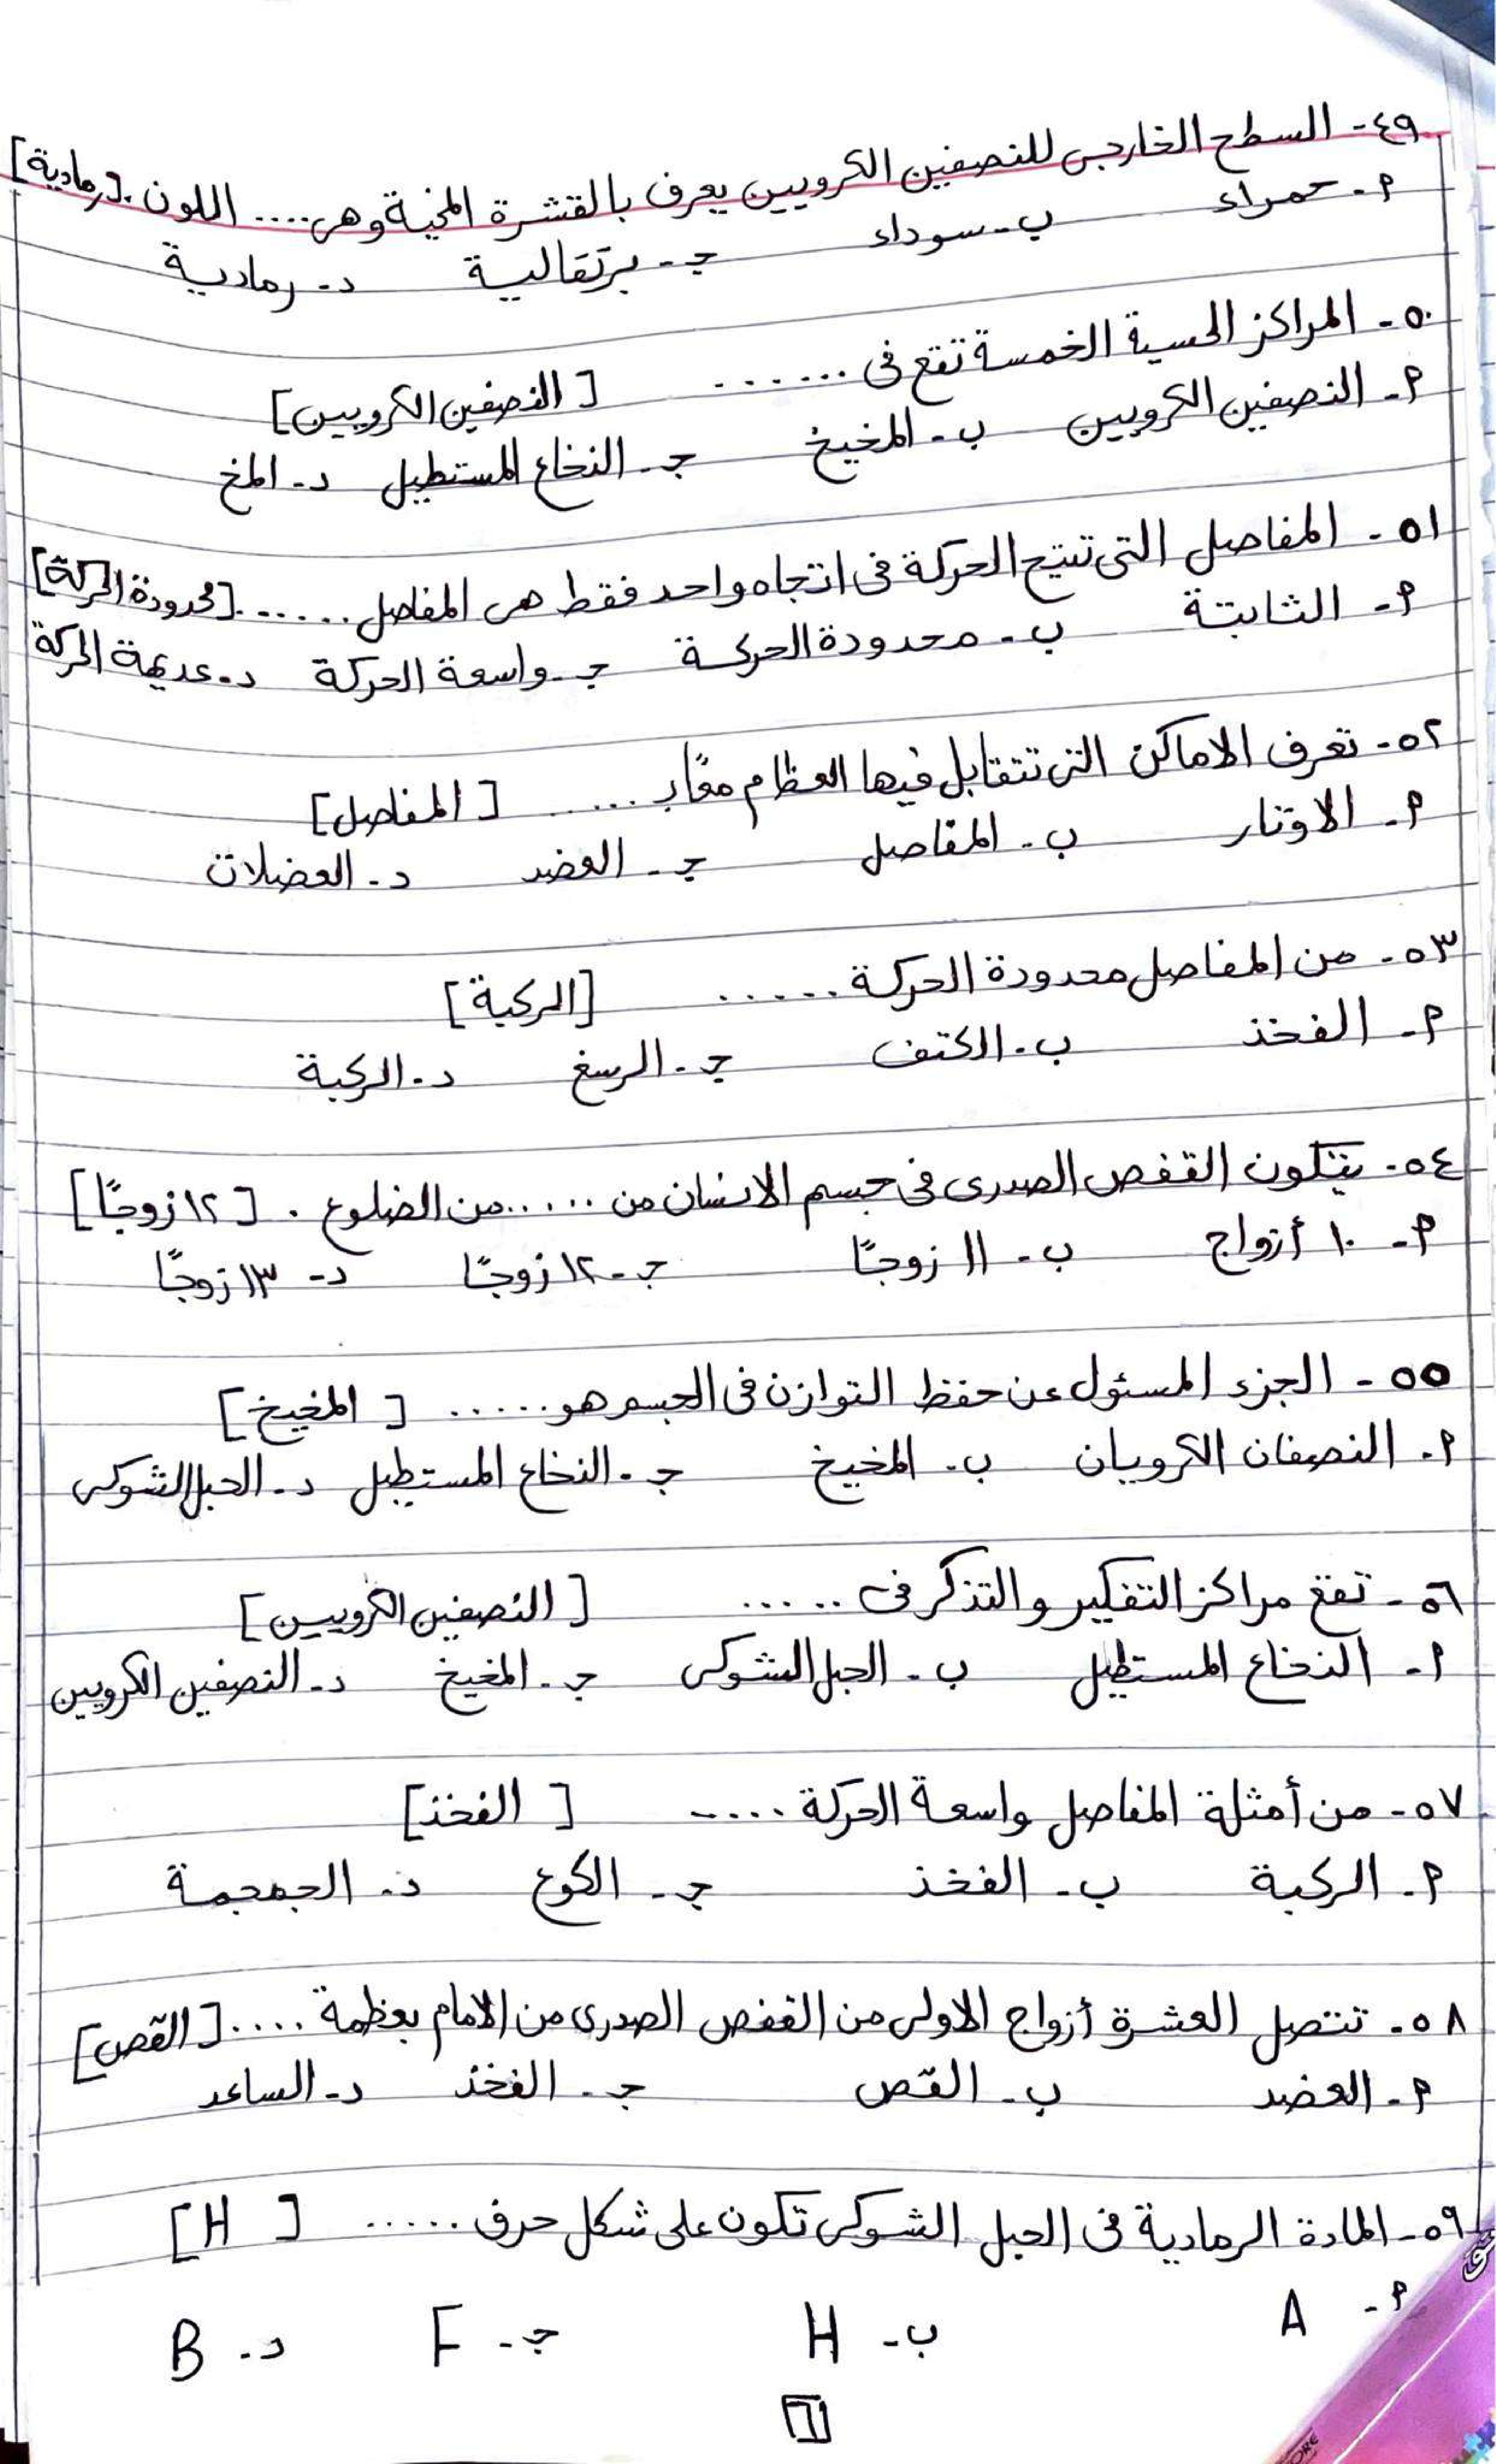 ٤٩- السطح الخارجى للنصفين الكرويين يعرف بالقشرة المخية وهى .... اللون. [رمادية]
أ- حمراء ب- سوداء جـ- برتقالية د- رمادية
٥٠- المراكز الحسية الخمسة تقع فى ...... [النصفين الكرويين]
أ- النصفين الكرويين ب- المخيخ جـ- النخاع المستطيل د- المخ
٥١- المفاصل التى تتيح الحركة فى اتجاه واحد فقط هى المفاصل ...... [محدودة الحركة]
أ- الثابتة ب- محدودة الحركة جـ- واسعة الحركة د- عديمة الحركة
٥٢- تعرف الاماكن التى تتقابل فيها العظام معًا بـ .... [المفاصل]
أ- الاوتار ب- المفاصل جـ- العضد د- العضلات
٥٣- من المفاصل محدودة الحركة ...... [الركبة]
أ- الفخذ ب- الكتف جـ- الرسغ د- الركبة
٥٤- يتكون القفص الصدرى فى جسم الانسان من ...... من الضلوع. [١٢ زوجًا]
أ- ١٠ أزواج ب- ١١ زوجًا جـ- ١٢ زوجًا د- ١٣ زوجًا
٥٥- الجزء المسئول عن حفظ التوازن فى الجسم هو ...... [المخيخ]
أ- النصفان الكرويان ب- المخيخ جـ- النخاع المستطيل د- الحبل الشوكى
٥٦- تقع مراكز التفكير والتذكر فى ..... [النصفين الكرويين]
أ- النخاع المستطيل ب- الحبل الشوكى جـ- المخيخ د- النصفين الكرويين
٥٧- من أمثلة المفاصل واسعة الحركة ..... [الفخذ]
أ- الركبة ب- الفخذ جـ- الكوع د- الجمجمة
٥٨- تتصل العشرة أزواج الاولى من القفص الصدرى من الامام بعظمة ..... [القص]
أ- العضد ب- القص جـ- الفخذ د- الساعد
٥٩- المادة الرمادية فى الحبل الشوكى تكون على شكل حرف ..... [H]
أ- A ب- H جـ- F د- B
٦